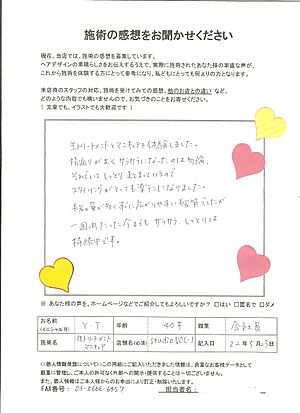 施術の感想をお聞かせください
現在、当店では、施術の感想を募集しています。
ヘアデザインの素晴らしさをお伝えするうえで、実際に施術されたあなたの率直な声が、
これから施術を体験する方にとって参考になり、私どもにとっても何よりの力となります。
来店時のスタッフの対応、施術を受けてみての感想、他のお店との違い など、
どのような内容でも構いませんので、お気づきのことをお寄せください。
( 文章でも、イラストでも大歓迎です )
生トリートメントとマニキュアを体験しました。
指通りがよくサラサラになったのは勿論、
それでいてしっとりまとまっているので
スタイリングがとっても楽ちんになりました。
髪の量が多く広がりやすい髪質でしたが
一週間たった今でも サラサラ、しっとりは
持続中です。
※ あなた様の声を、ホームページなどでご紹介してもよろしいですか? □はい □匿名で □ダメ
お名前 (イニシャル可) Y T 年齢 40才 職業 会社員
施術名 生トリートメント マニキュア 店舗名(必須) Studio 記入日 22年5月3日
<個人情報保護について>この用紙にご記入いただいた情報は、貴重なお客様データとして
厳重に管理し、ご本人の許可なく外部への開示・提供することは一切ございません。
また、個人情報はご本人様からのお申出により訂正・削除いたします。
FAX番号: 03-5666-6957 担当者名: